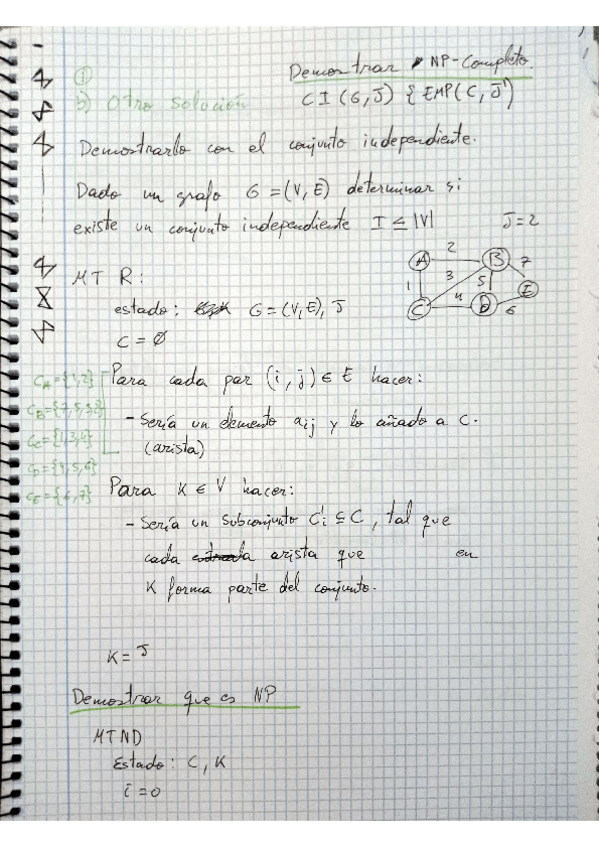 Demostrar NP-Completo.
①
b) Otra solución
CI(G,J) {EMP(C,J')
Demostrarlo con el conjunto independiente.
Dado un grafo G=(V,E) determinar si
existe un conjunto independiente I ≤ |V|
J=2
A 2 B 7
1 3 5 E
C 4 D 6
MT R:
estado: G=(V,E), J
C = ∅
Para cada par (i,j) ∈ E hacer:
- Sería un elemento aij y lo añado a C.
(arista)
CA={1,2}
CB={7,5,3,2}
CC={1,3,4}
CD={4,5,6}
CE={6,7}
Para K ∈ V hacer:
- Sería un subconjunto C'i ⊆ C, tal que
cada arista que en
K forma parte del conjunto.
K = J
Demostrar que es NP
MTND
Estado: C, K
i=0